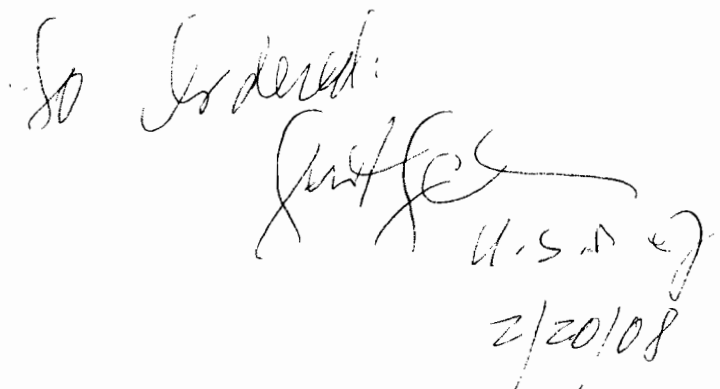 So Ordered:
U.S.D.J
2/20/08